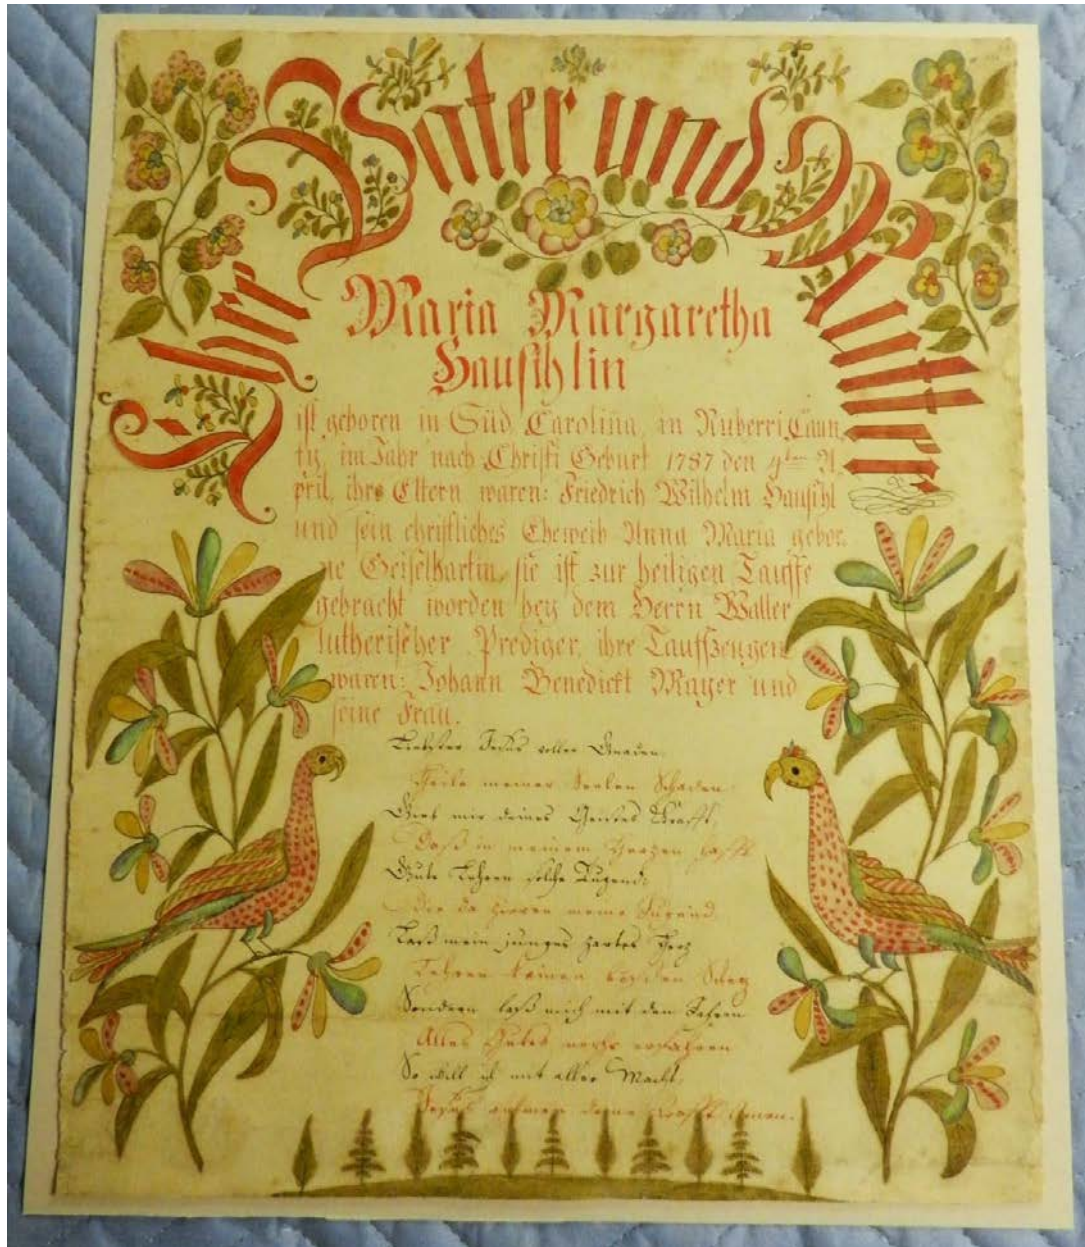 Ihr Vater und Mutter
Maria Margaretha
Hauschlin
ist geboren in Süd Carolina, in Nuberri Caun,
ty, im Jahr nach Christi Geburt 1787 den 9ten A,
pril, ihre Eltern waren: Friedrich Wilhelm Hausihl
und sein christliches Eheweib Anna Maria gebor,
ne Geiselhartin, sie ist zur heiligen Tauffe
gebracht worden bey dem Herrn Waller
lutherischer Prediger, ihre Taufszeugen
waren: Johann Benedickt Mayer und
seine Frau.
Liebster Jesus voller Gnaden,
Heile meiner Seelen Schaden
Gieb mir deines Geistes Krafft,
Daß in meinem Herzen hafft
Gute Lehren solche Tugend,
Die da zieren meine Jugend
Laß mein junges zartes Herz
Lehren keinen bösen
Sondern laß mich mit den Jahren
Alles Gutes mehr erfahren
So will ich mit aller Macht,
Jesus rühmen deine Krafft Amen.